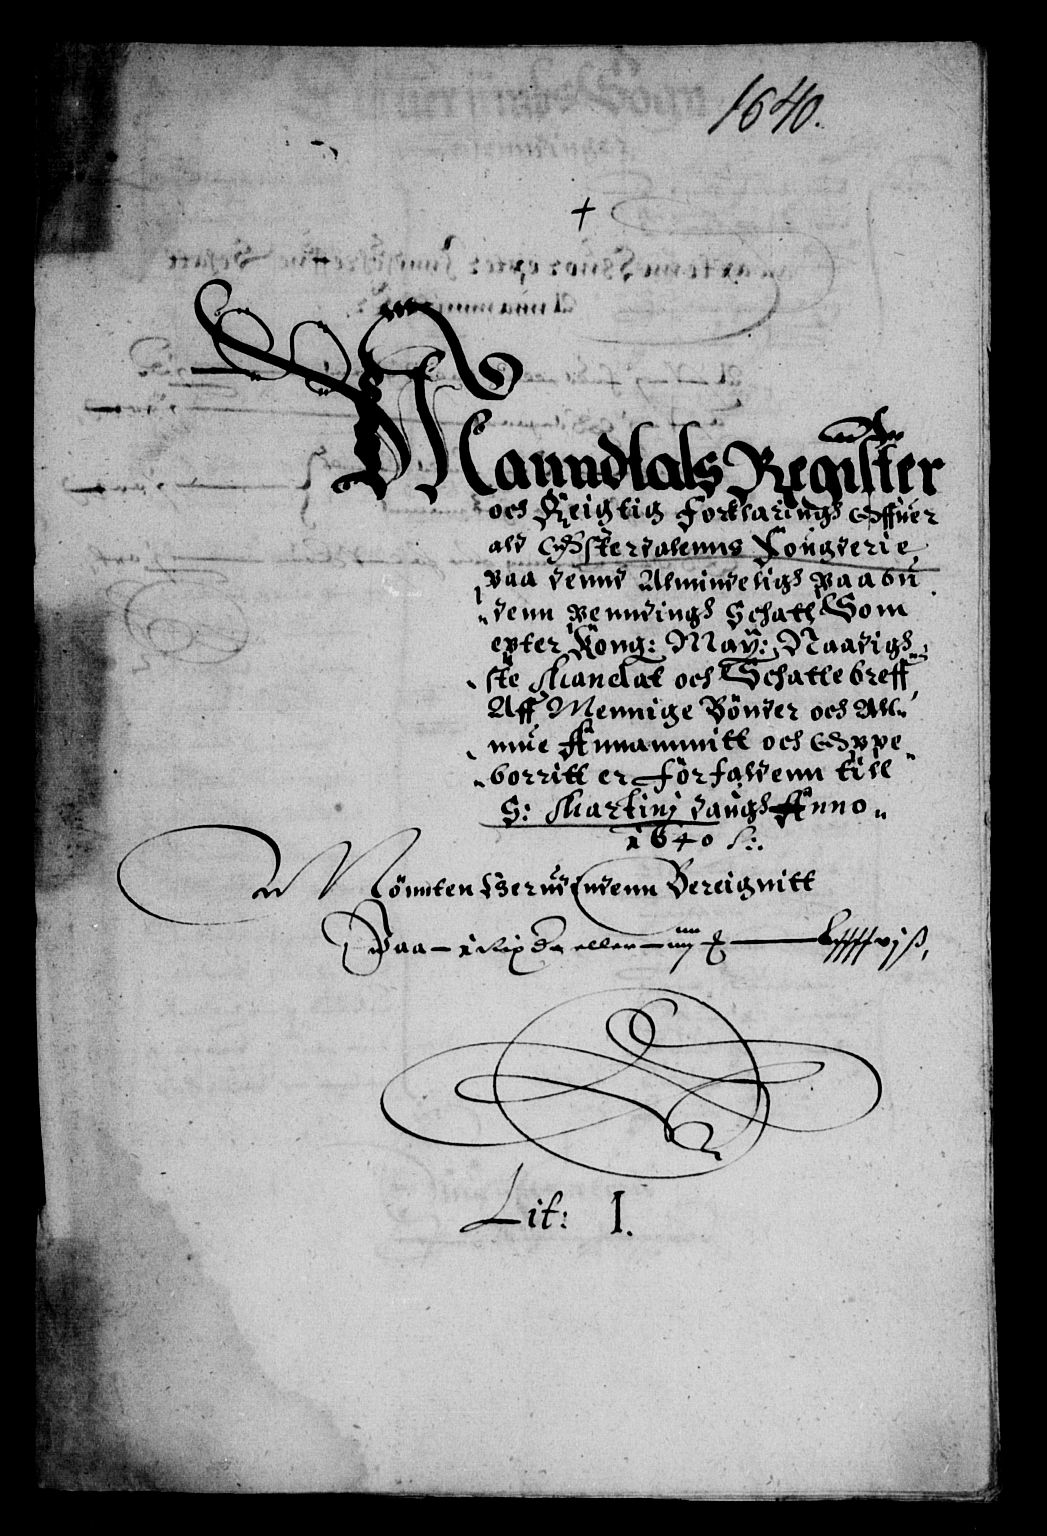 1640.
+
Manndtals Register
och Reigtig Forklaringh offuer
ald Østerdalenns Fougderie
paa dennd Almindeligh paabu
denn penndingh Schatt Som
epter Kong: May: Naadigh
ste Mandat och Schattebreff
Aff Mennige Bönder och All
mue Annammitt och Oppe
borritt er förfaldenn till
S: Martinj daugh Anno
1640
Mönnten herudindenn Bereignitt
Paa 1 Rix dr eller
Lit: I.